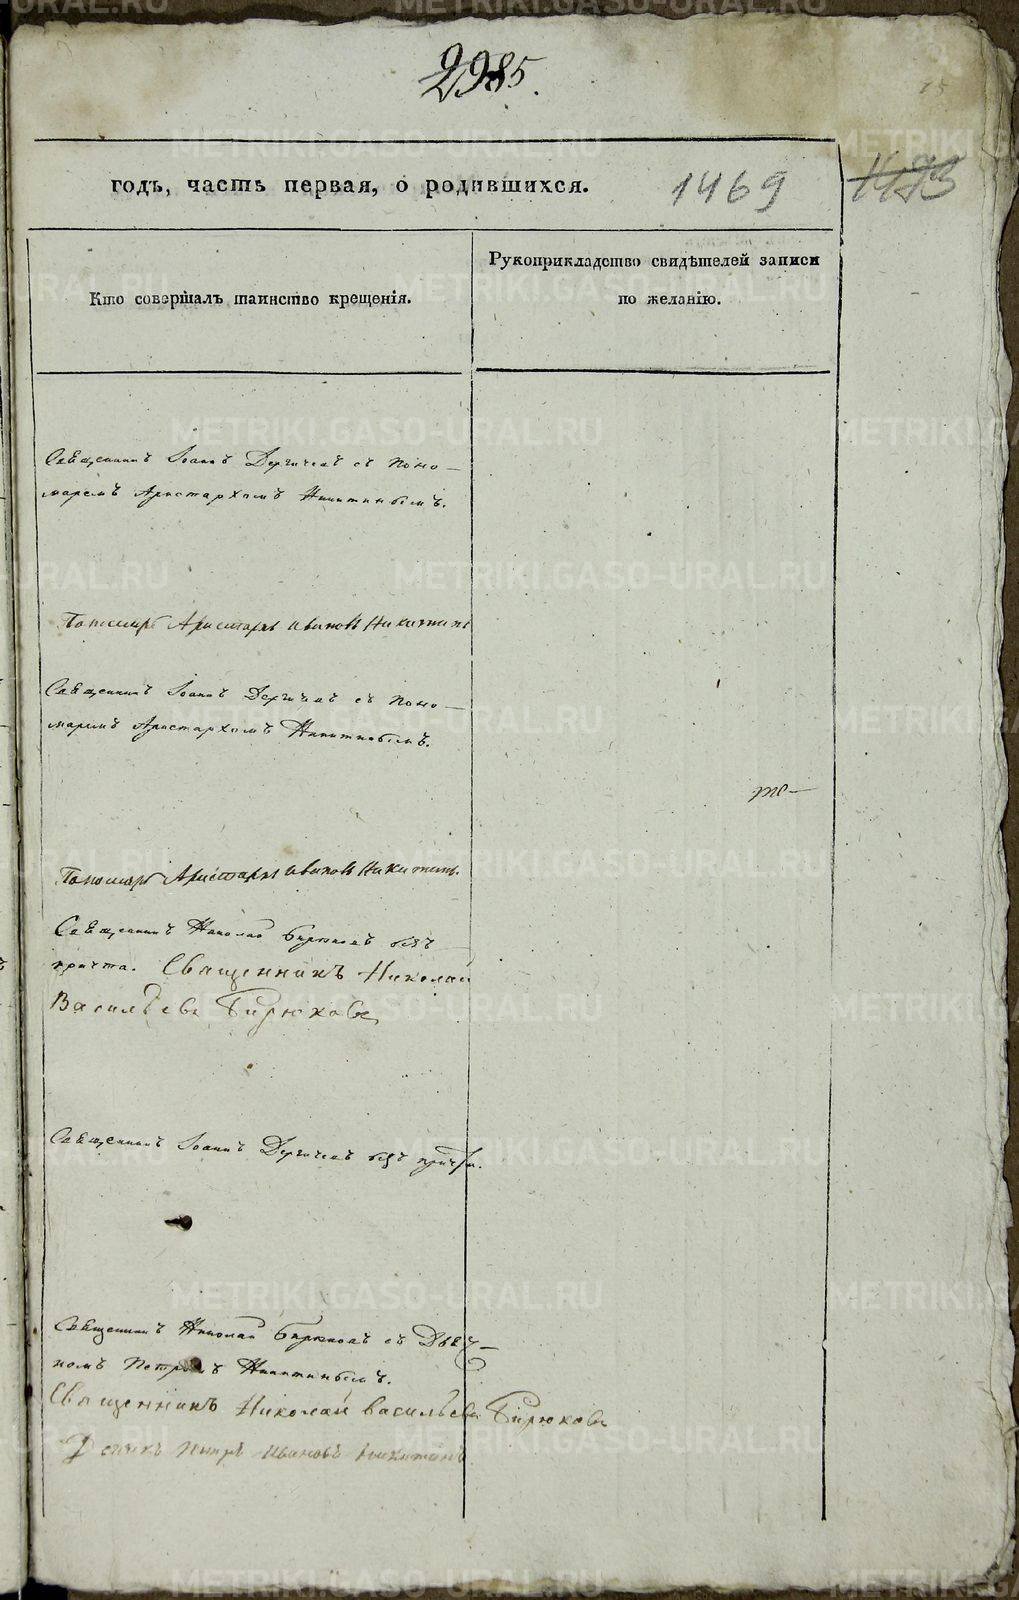 2985.
годъ, часть первая, о родившихся.
1469
1473
Кто совершалъ таинство крещенія.
Рукоприкладство свидѣтелей записи
по желанію.
Священникъ Іоаннъ Дергачевъ съ поно-
маремъ Аристархомъ Никитинымъ.
Пономарь Аристархъ Ивановъ Никитинъ
Священникъ Іоаннъ Дергачевъ съ поно-
маремъ Аристархомъ Никитинымъ.
Пономарь Аристархъ Ивановъ Никитинъ.
Священникъ Николай Бирюковъ безъ
причта. Священникъ Николай
Васильевъ Бирюковъ
Священникъ Іоаннъ Дергачевъ безъ причта.
Священникъ Николай Бирюковъ съ Дьяч-
комъ Петромъ Никитинымъ.
Священникъ Николай Васильевъ Бирюковъ
Дьячекъ Петръ Ивановъ Никитинъ
METRIKI.GASO-URAL.RU